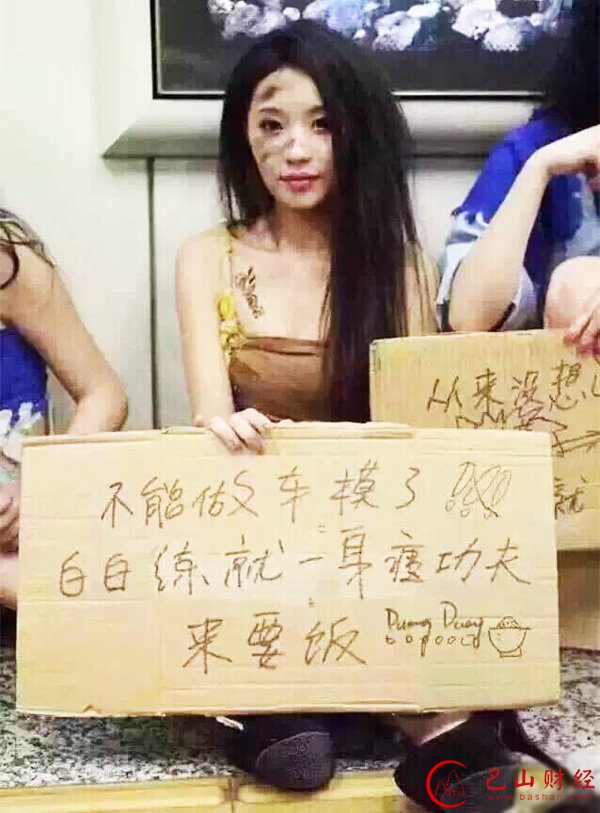 不能做车模了
白白练就一身瘦功夫
来要饭 Duang Duang
从来没想
就
巴山财经